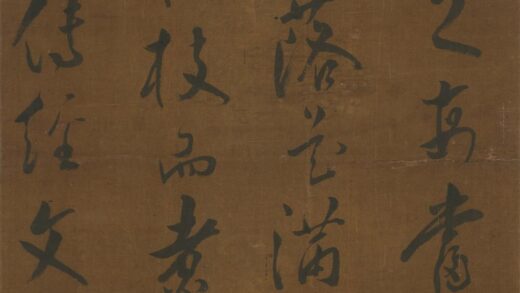 之
落花滿
枝而煮
傳經文